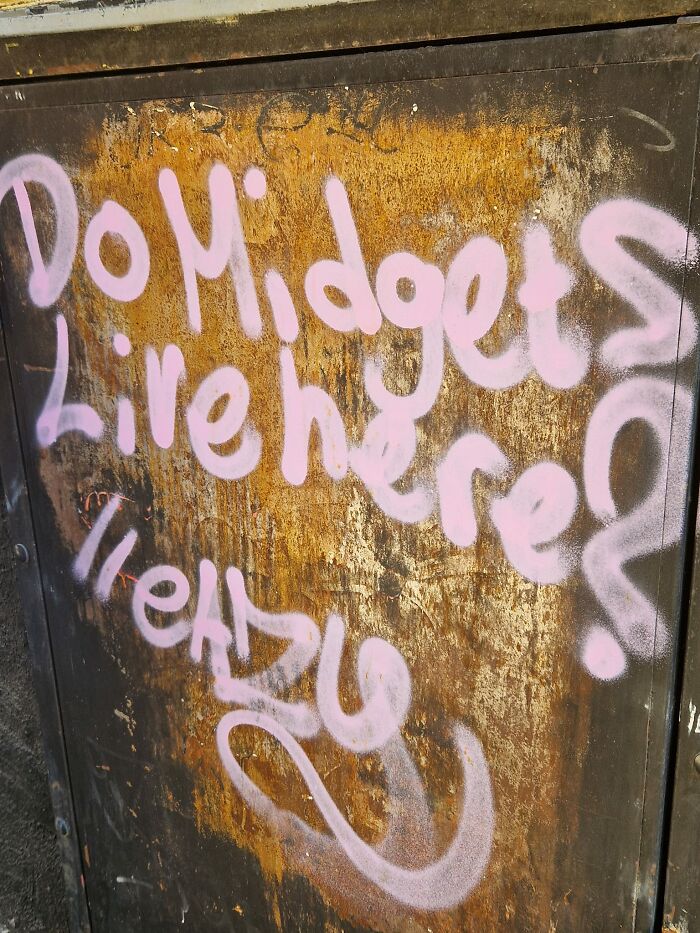 Do Midgets
Live here?